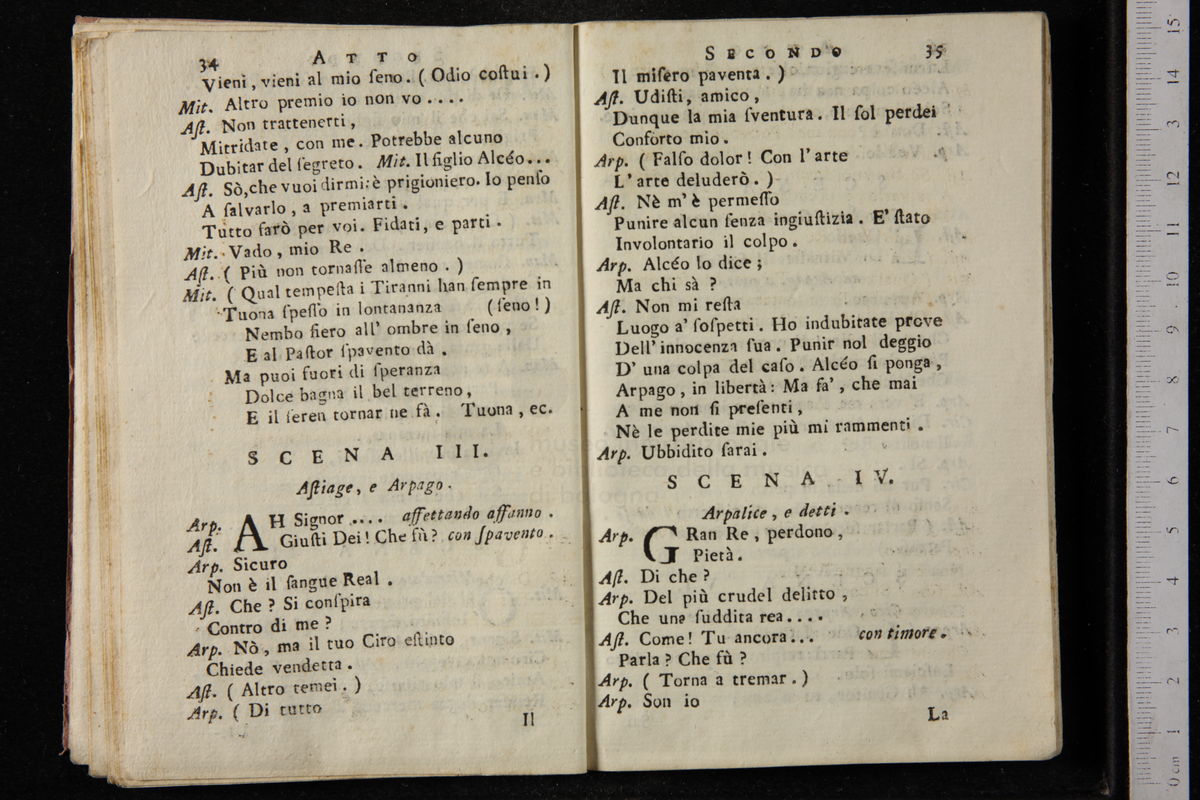 34 ATTO
Vieni, vieni al mio ſeno. ( Odio coſtui . )
Mit. Altro premio io non vo ....
Aſt. Non trattenerti,
Mitridate, con me. Potrebbe alcuno
Dubitar del ſegreto. Mit. Il figlio Alcéo...
Aſt. Sò, che vuoi dirmi: è prigioniero. Io penſo
A ſalvarlo, a premiarti.
Tutto farò per voi. Fidati, e parti.
Mit. Vado, mio Re.
Aſt. ( Più non tornaſſe almeno. )
Mit. ( Qual tempeſta i Tiranni han ſempre in
Tuona ſpeſſo in lontananza (ſeno!)
Nembo fiero all' ombre in ſeno,
E al Paſtor ſpavento dà.
Ma puoi fuori di ſperanza
Dolce bagna il bel terreno,
E il ſeren tornar ne fà. Tuona, ec.
SCENA III.
Aſtiage, e Arpago.
Arp. AH Signor .... affettando affanno.
Aſt. Giuſti Dei! Che fù? con ſpavento.
Arp. Sicuro
Non è il ſangue Real.
Aſt. Che? Si conſpira
Contro di me?
Arp. Nò, ma il tuo Ciro eſtinto
Chiede vendetta.
Aſt. ( Altro temei. )
Arp. ( Di tutto
Il
SECONDO 35
Il miſero paventa. )
Aſt. Udiſti, amico,
Dunque la mia ſventura. Il ſol perdei
Conforto mio.
Arp. ( Falſo dolor! Con l'arte
L'arte deluderò. )
Aſt. Nè m'è permeſſo
Punire alcun ſenza ingiuſtizia. E' ſtato
Involontario il colpo.
Arp. Alcéo lo dice;
Ma chi sà?
Aſt. Non mi reſta
Luogo a' ſoſpetti. Ho indubitate prove
Dell'innocenza ſua. Punir nol deggio
D' una colpa del caſo. Alcéo ſi ponga,
Arpago, in libertà: Ma fa', che mai
A me non ſi preſenti,
Nè le perdite mie più mi rammenti.
Arp. Ubbidito ſarai.
SCENA IV.
Arpalice, e detti.
Arp. GRan Re, perdono,
Pietà.
Aſt. Di che?
Arp. Del più crudel delitto,
Che una ſuddita rea....
Aſt. Come! Tu ancora... con timore.
Parla? Che fù?
Arp. ( Torna a tremar. )
Arp. Son io
La
museo
e biblioteca della musica
di bologna
15
14
13
12
11
10
9
8
7
6
5
4
3
2
1
0 cm